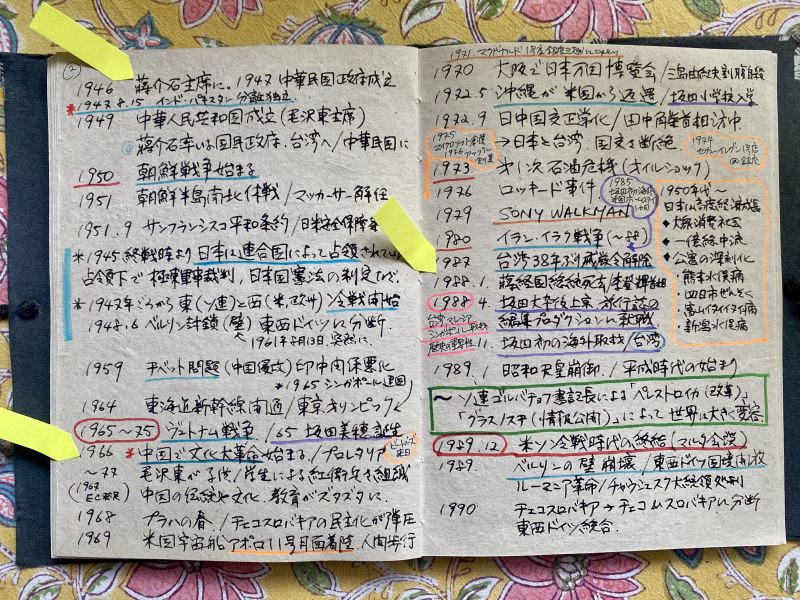 (2)
1946 蒋介石主席に。1947 中華民国政府成立
*1947.8.15 インド・パキスタン分離独立.
1949 中華人民共和国成立(毛沢東主席)
蒋介石率いる国民政府、台湾へ/中華民国に
1950 朝鮮戦争始まる
1951 朝鮮半島南北休戦/マッカーサー解任
1951.9 サンフランシスコ平和条約/日米安全保障
*1945 終戦時より日本は連合国によって占領されて
占領下で極東軍事裁判、日本国憲法の制定など.
*1947年ごろから東(ソ連)と西(米欧州)冷戦開始
1948.6 ベルリン封鎖(壁) 東西ドイツに分断.
1961年8月13日、突然に.
1959 チベット問題(中国侵攻)印中関係悪化
*1965 シンガポール建国
1964 東海道新幹線開通/東京オリンピック
1965〜75 ベトナム戦争/65 坂田美穂誕生
ビートルズ来日
1966 *中国で文化大革命始まる/プロレタリア
〜77 毛沢東が子供/学生による紅衛兵を組織
(1967 EC発足) 中国の伝統や文化、教育がズタズタに.
1968 プラハの春/チェコスロバキアの民主化が弾圧
1969 米国宇宙船アポロ11号月面着陸 人間歩行
1971. マクドナルド1号店銀座三越にopen
1970 大阪で日本万国博覧会/三島由紀夫割腹自殺
1972.5 沖縄が米国から返還/坂田小学校入学
1972.9 日中国交正常化/田中角栄首相訪中.
→日本と台湾 国交を断絶
1975 マイクロソフト創業
1976 アップル創業
1974 セブンイレブン1号店
1973 第1次石油危機(オイルショック)
1976 ロッキード事件
1985 坂田初の海外
1979 SONY WALKMAN
1980 イラン・イラク戦争(〜88)
1987 台湾38年ぶり戒厳令解除
1988.1. 蒋経国総統死去/李登輝
1988 4. 坂田大卒後上京、旅行誌の
編集プロダクションに就職
11. 坂田初の海外取材/台湾
台湾、マレーシア
シンガポール取材
歴史の重要性
1950年代〜
日本は高度経済成長
◆大衆消費社会
◆一億総中流
◆公害の深刻化
・熊本水俣病
・四日市ぜんそく
・富山イタイイタイ病
・新潟水俣病
1989.1 昭和天皇崩御./平成時代の始まり
〜ソ連ゴルバチョフ書記長による「ペレストロイカ(改革)」
「グラスノスチ(情報公開)」によって世界は大きく変容.
1989.12 米ソ冷戦時代の終結(マルタ会談)
1989. ベルリンの壁崩壊/東西ドイツ国境開放
ルーマニア革命/チャウシェスク大統領処刑
1990 チェコスロバキア→チェコとスロバキアに分断
東西ドイツ統合.